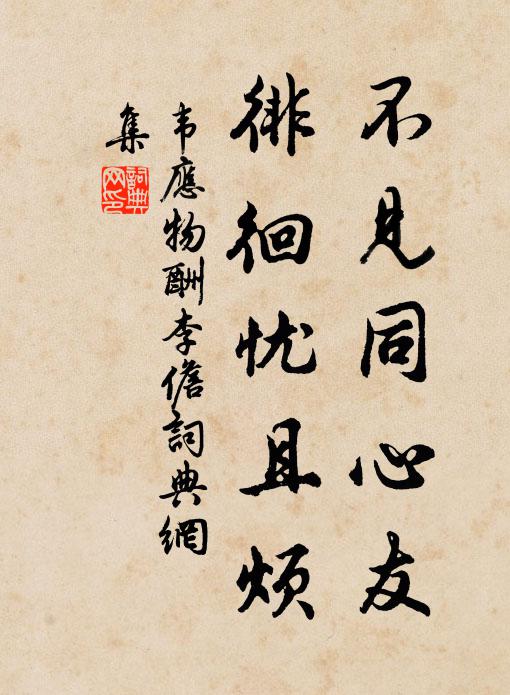 不见同心友
徘徊忧且烦
韦應物酬李儋詞典網
集
詞典网印